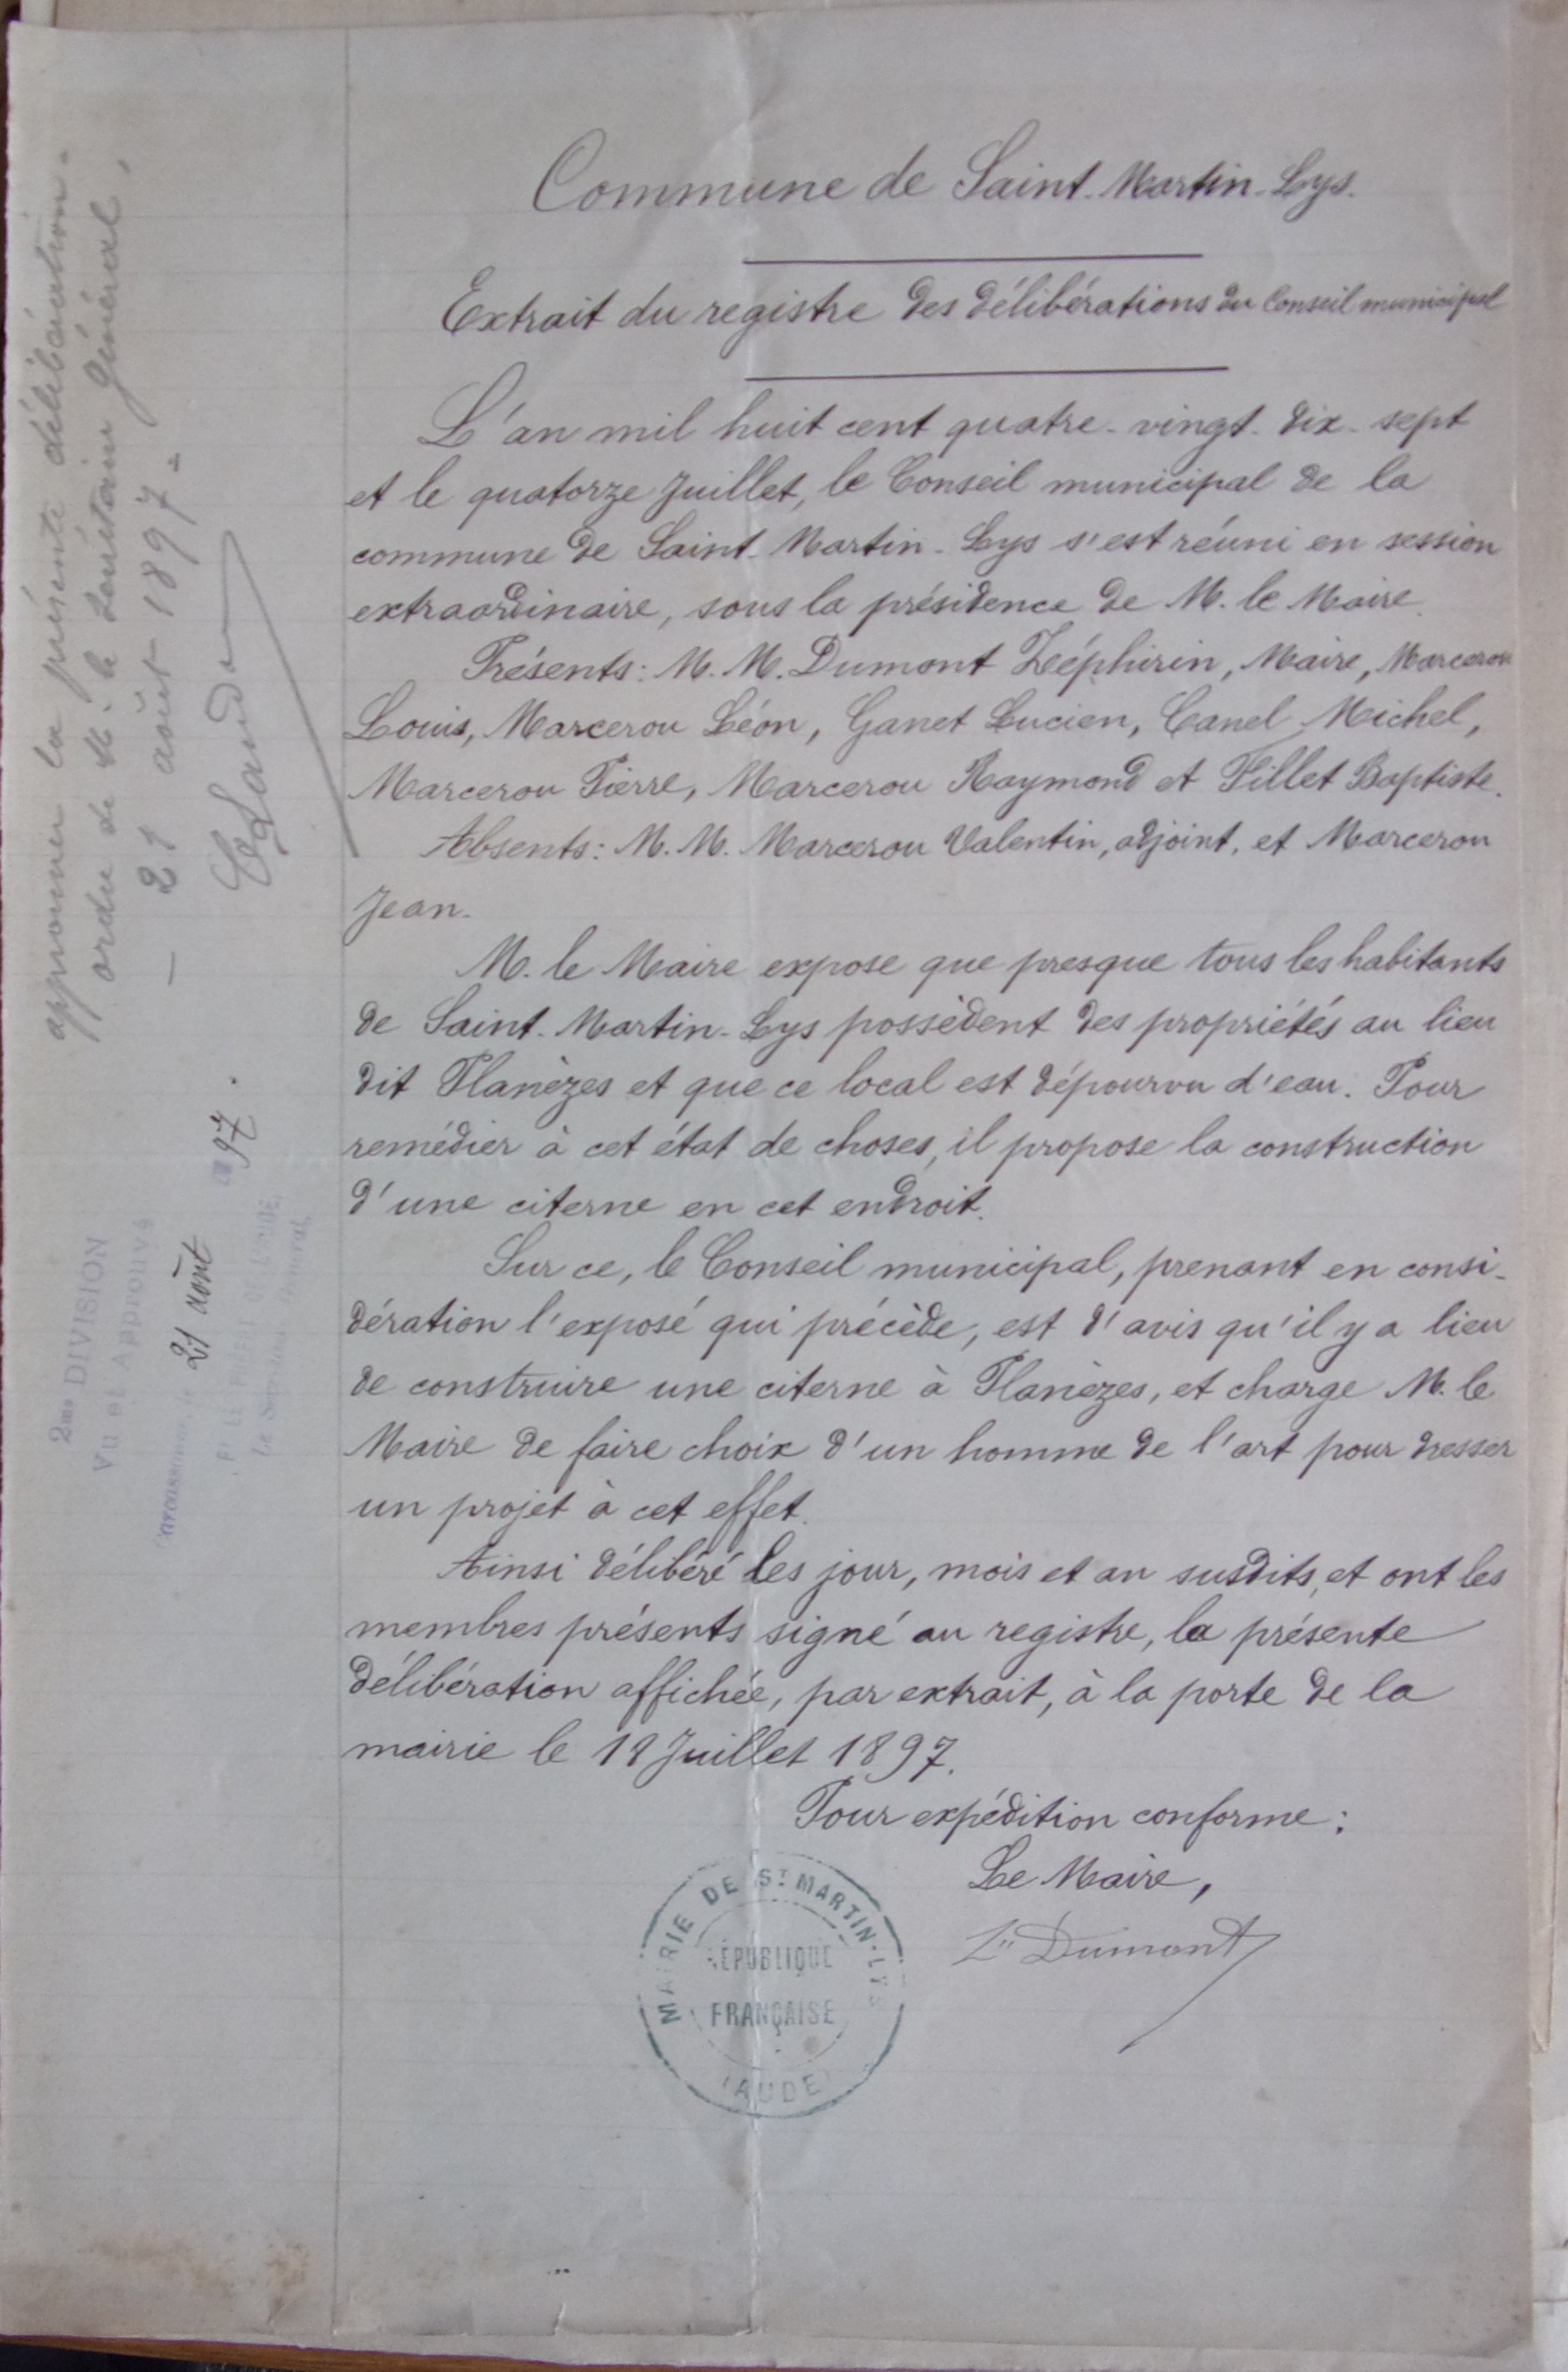 Commune de Saint-Martin-Lys.
Extrait du registre des délibérations du Conseil municipal
L'an mil huit cent quatre-vingt-dix-sept
et le quatorze Juillet, le Conseil municipal de la
commune de Saint-Martin-Lys s'est réuni en session
extraordinaire, sous la présidence de M. le Maire.
Présents: M. M. Dumont Zéphirin, Maire, Marcerou
Louis, Marcerou Léon, Ganet Lucien, Canel Michel,
Marcerou Pierre, Marcerou Raymond et Pillet Baptiste.
Absents: M. M. Marcerou Valentin, adjoint, et Marcerou
Jean.
M. le Maire expose que presque tous les habitants
de Saint-Martin-Lys possèdent des propriétés au lieu
dit Planèzes et que ce local est dépourvu d'eau. Pour
remédier à cet état de choses, il propose la construction
d'une citerne en cet endroit.
Sur ce, le Conseil municipal, prenant en consi-
dération l'exposé qui précède, est d'avis qu'il y a lieu
de construire une citerne à Planèzes, et charge M. le
Maire de faire choix d'un homme de l'art pour dresser
un projet à cet effet.
Ainsi délibéré les jour, mois et an susdits, et ont les
membres présents signé au registre, la présente
délibération affichée, par extrait, à la porte de la
mairie le 18 Juillet 1897.
Pour expédition conforme:
Le Maire,
Zin Dumont
MAIRIE DE ST MARTIN-LYS
RÉPUBLIQUE
FRANÇAISE
(AUDE)
approuver la présente délibération.
ordre de M. le Secrétaire Général,
— 21 août 1897 =
2me DIVISION
Vu et Approuvé
Carcassonne, le 21 août 97.
P. LE PRÉFET DE L'AUDE,
Le Secrétaire Général,